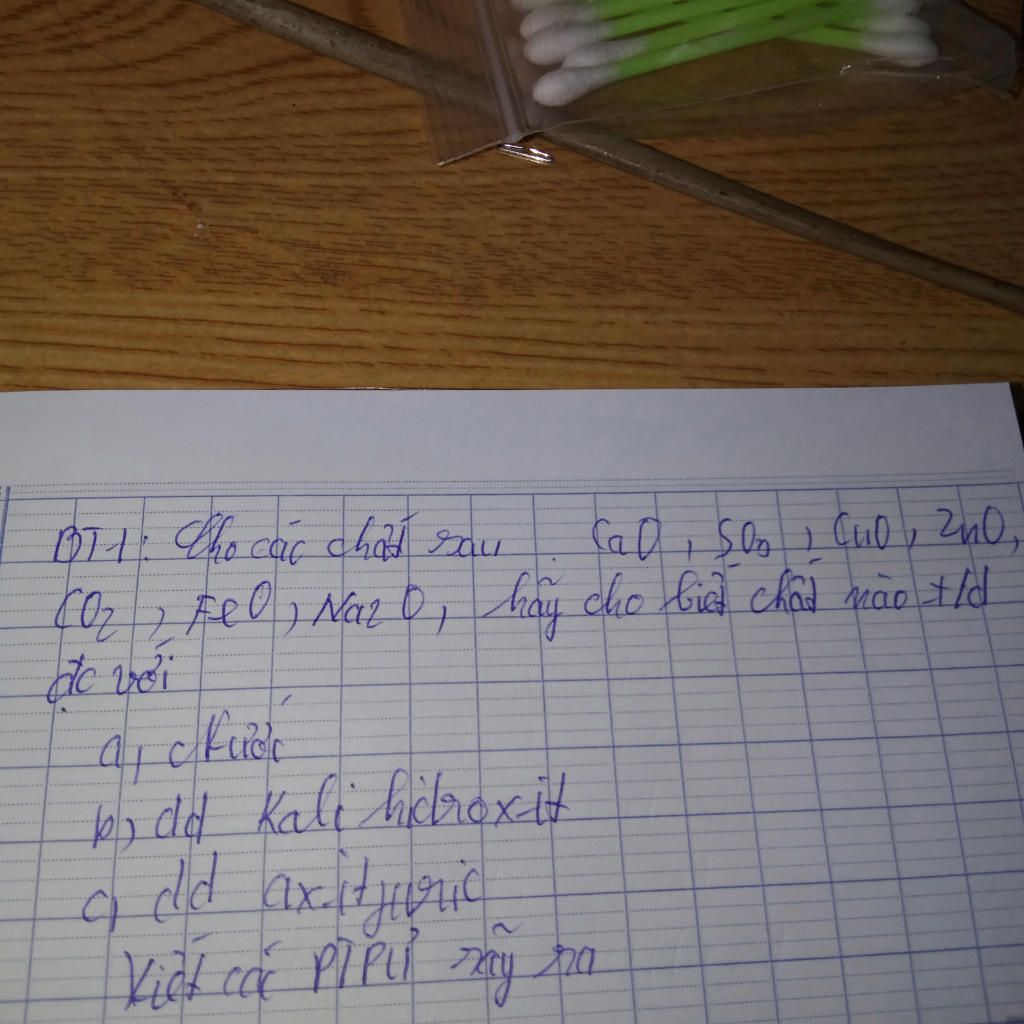 BT1: Cho các chất sau : CaO, SO₂, CuO, ZnO,
CO₂, FeO, Na₂O, hãy cho biết chất nào t/d
đc với
a, Nước
b, dd Kali hidroxit
c, dd axit
Viết các PTPƯ xãy ra